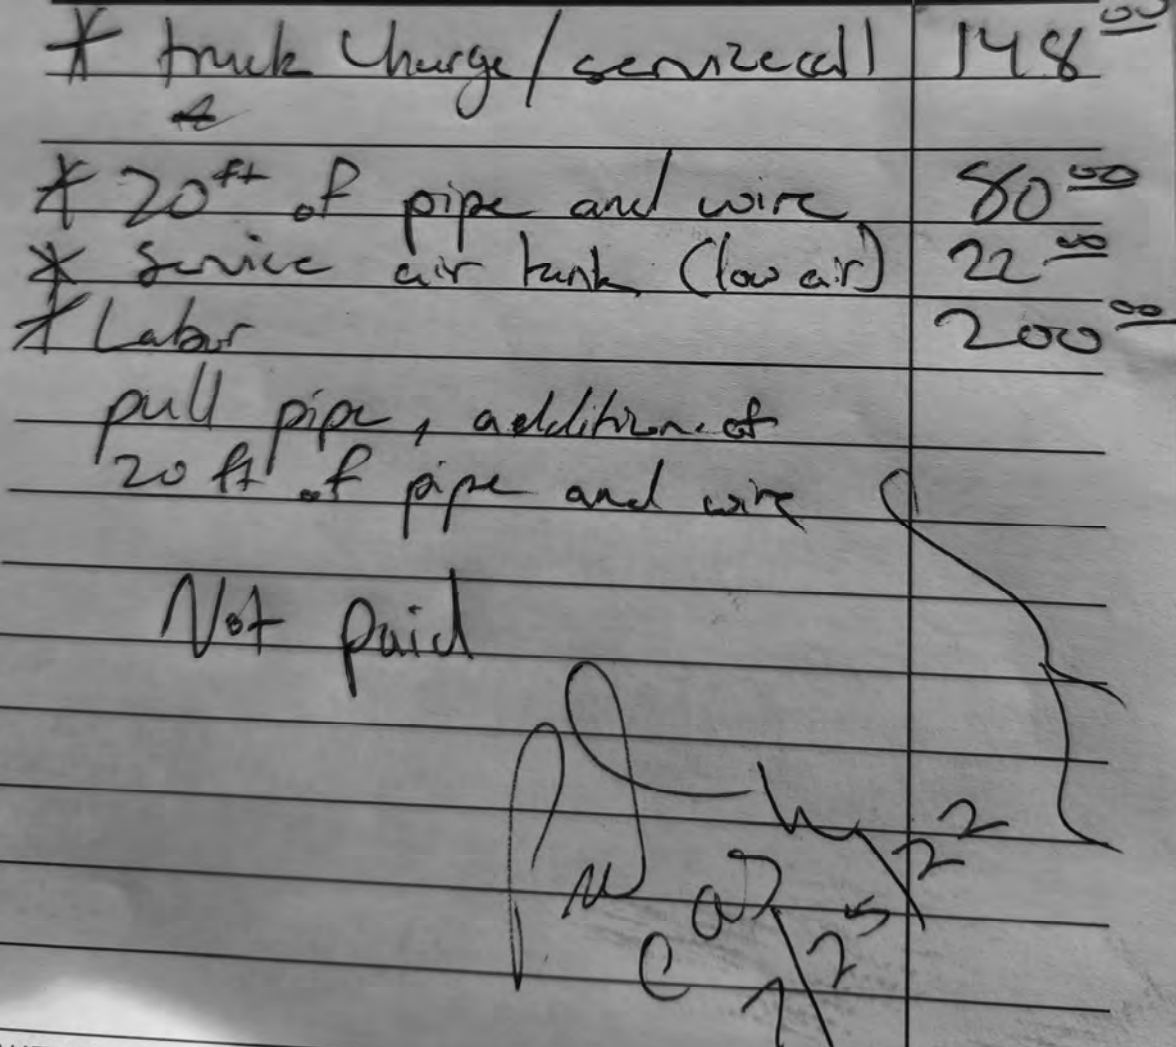 * truck charge/service call 148.00
* 20 ft of pipe and wire 80.00
* Service air tank (low air) 22.00
* Labor 200.00
pull pipe, addition of
20 ft of pipe and wire
Not paid